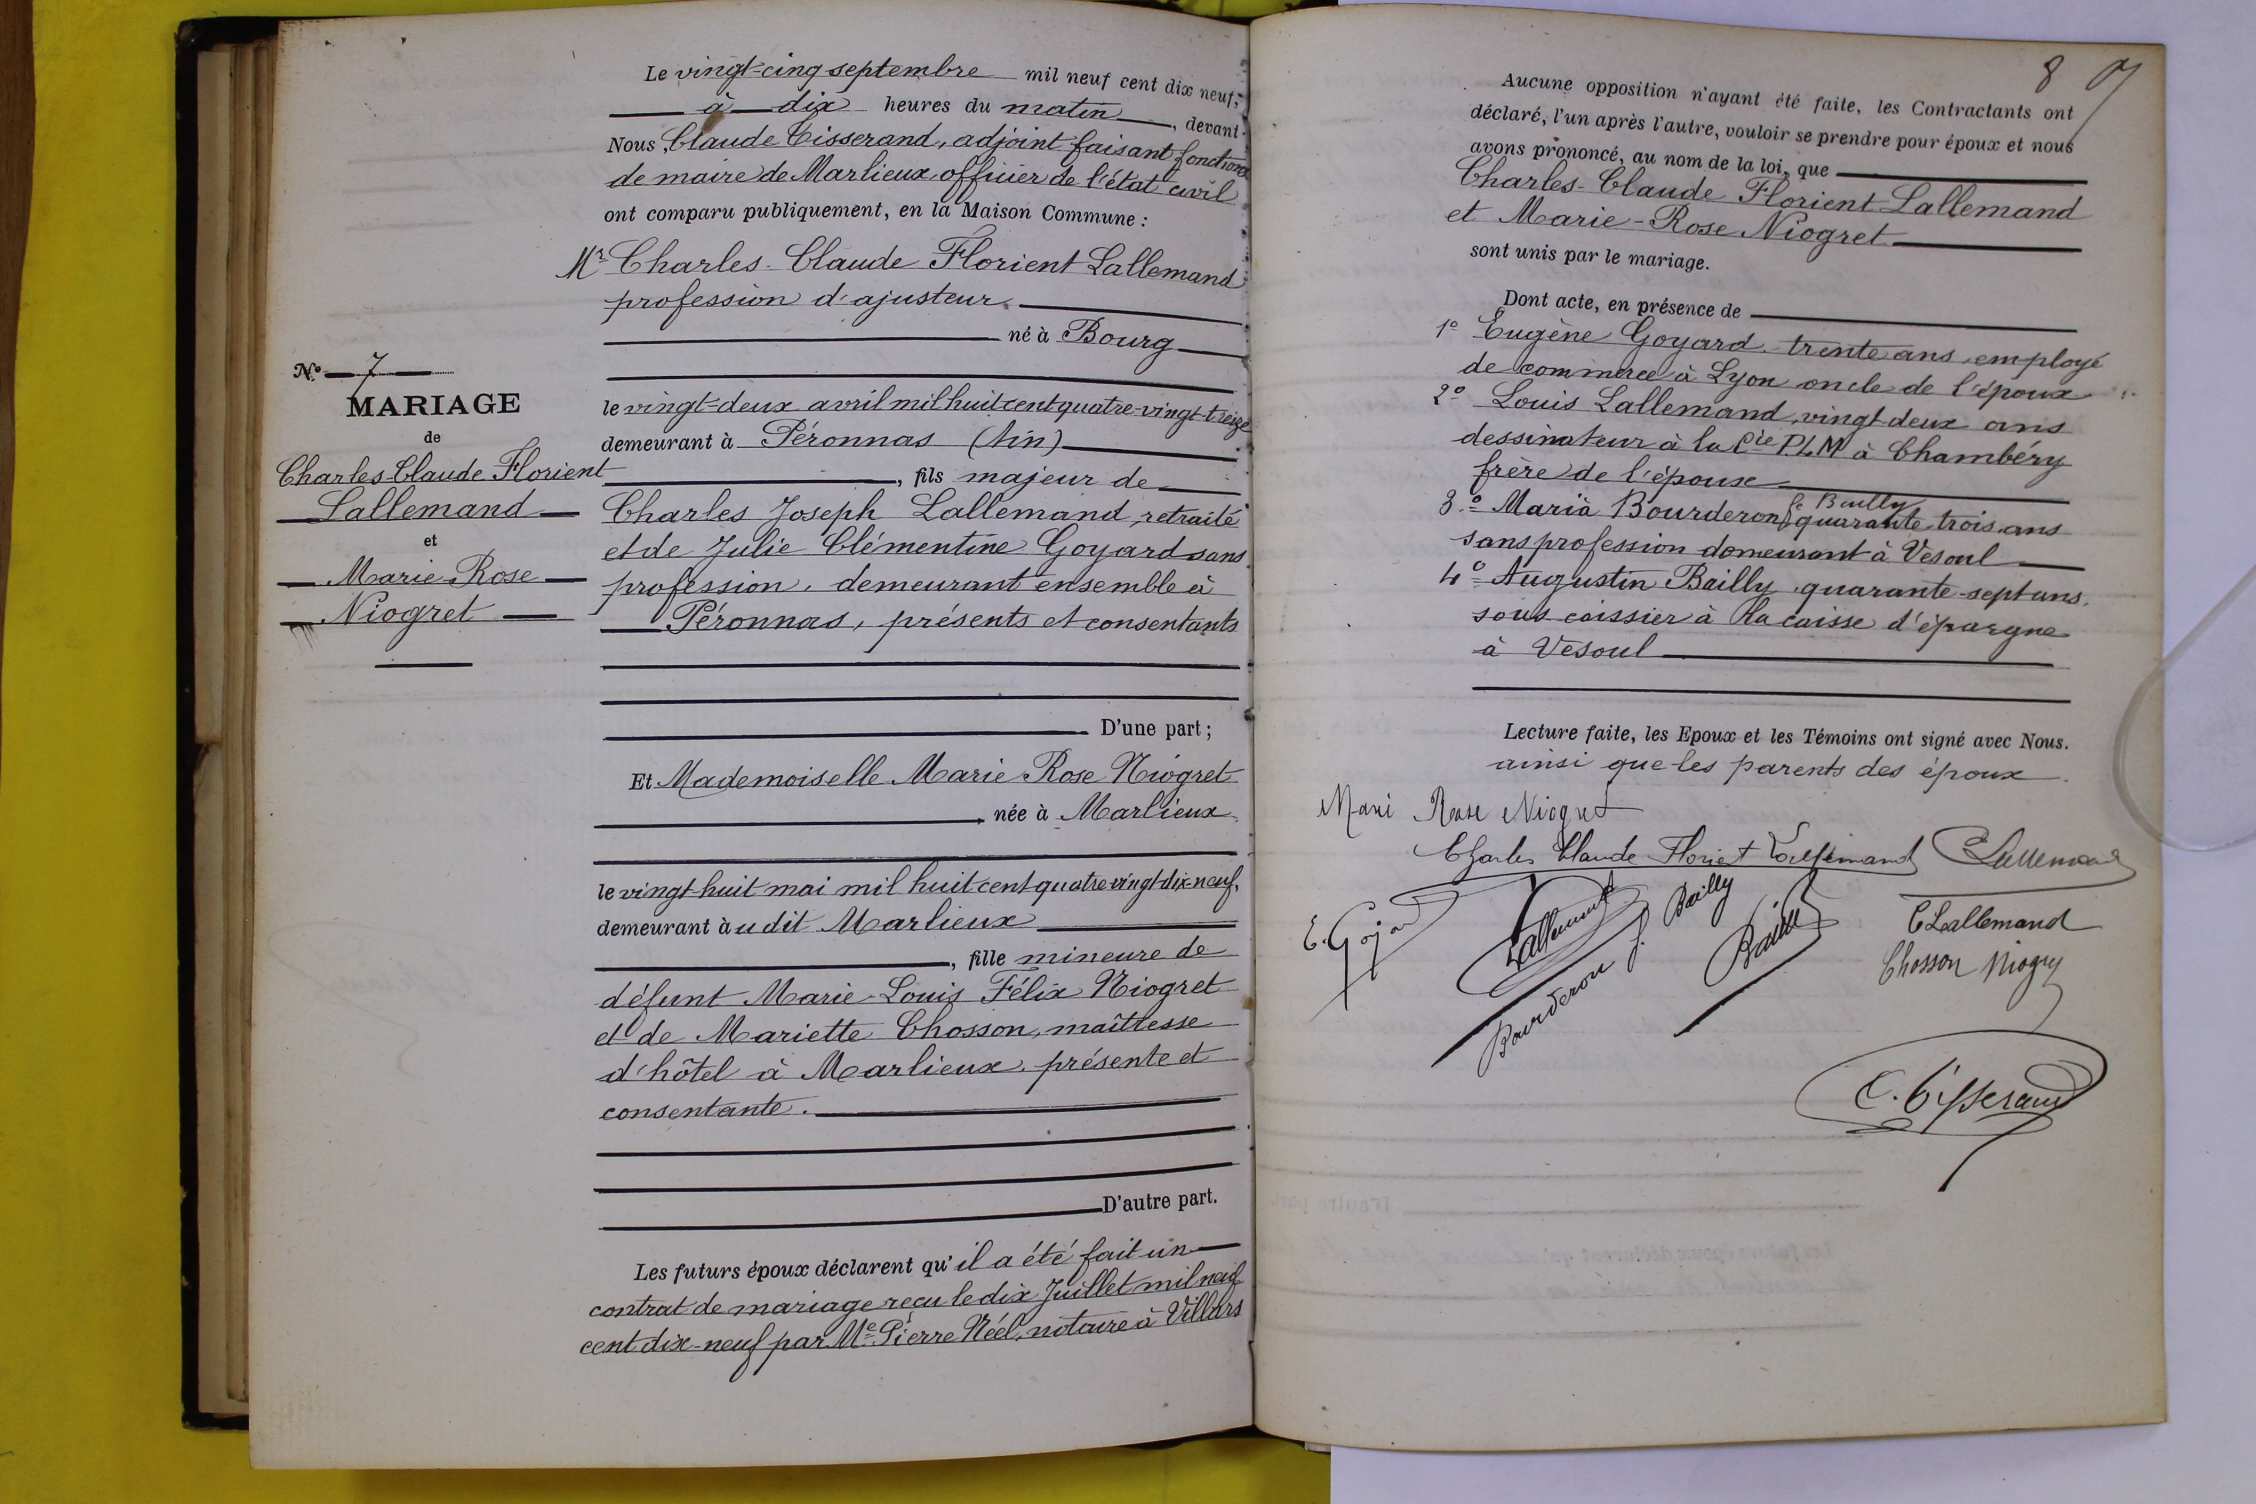 Le vingt-cinq septembre mil neuf cent dix neuf,
à dix heures du matin, devant
Nous, Claude Tisserand, adjoint faisant fonctions
de maire de Marlieux officier de l'état civil
ont comparu publiquement, en la Maison Commune :
Mr Charles-Claude Florient Lallemand
profession d'ajusteur
né à Bourg
le vingt-deux avril mil huit cent quatre-vingt-treize
demeurant à Péronnas (Ain)
, fils majeur de
Charles Joseph Lallemand, retraité
et de Julie Clémentine Goyard sans
profession, demeurant ensemble à
Péronnas, présents et consentants
D'une part ;
Et Mademoiselle Marie Rose Niogret
née à Marlieux
le vingt-huit mai mil huit cent quatre-vingt-dix-neuf,
demeurant à udit Marlieux
, fille mineure de
défunt Marie-Louis Félix Niogret
et de Mariette Chosson, maîttesse
d'hôtel à Marlieux, présente et
consentante.
D'autre part.
Les futurs époux déclarent qu'il a été fait un
contrat de mariage reçu le dix Juillet mil neuf
cent dix-neuf par Me Pierre Néel, notaire à Villars
N° 7
MARIAGE
de
Charles-Claude Florient
Lallemand
et
Marie-Rose
Niogret
8
Aucune opposition n'ayant été faite, les Contractants ont
déclaré, l'un après l'autre, vouloir se prendre pour époux et nous
avons prononcé, au nom de la loi, que
Charles-Claude Florient Lallemand
et Marie-Rose Niogret
sont unis par le mariage.
Dont acte, en présence de
1° Eugène Goyard trente ans employé
de commerce à Lyon oncle de l'époux
2° Louis Lallemand, vingt-deux ans
dessinateur à la Cie PLM à Chambéry
frère de l'époux
3° Maria Bourderon fe Bailly quarante trois ans
sans profession demeurant à Vesoul
4° Augustin Bailly quarante-sept ans,
sous caissier à la caisse d'épargne
à Vesoul
Lecture faite, les Epoux et les Témoins ont signé avec Nous.
ainsi que les parents des époux
Mari Rose Niogret
Charles Claude Florient Lallemand C Lallemand
E. Goyard Lallemand Bourderon f. Bailly Bailly
C Lallemand
Chosson Niogret
C. Tisserand